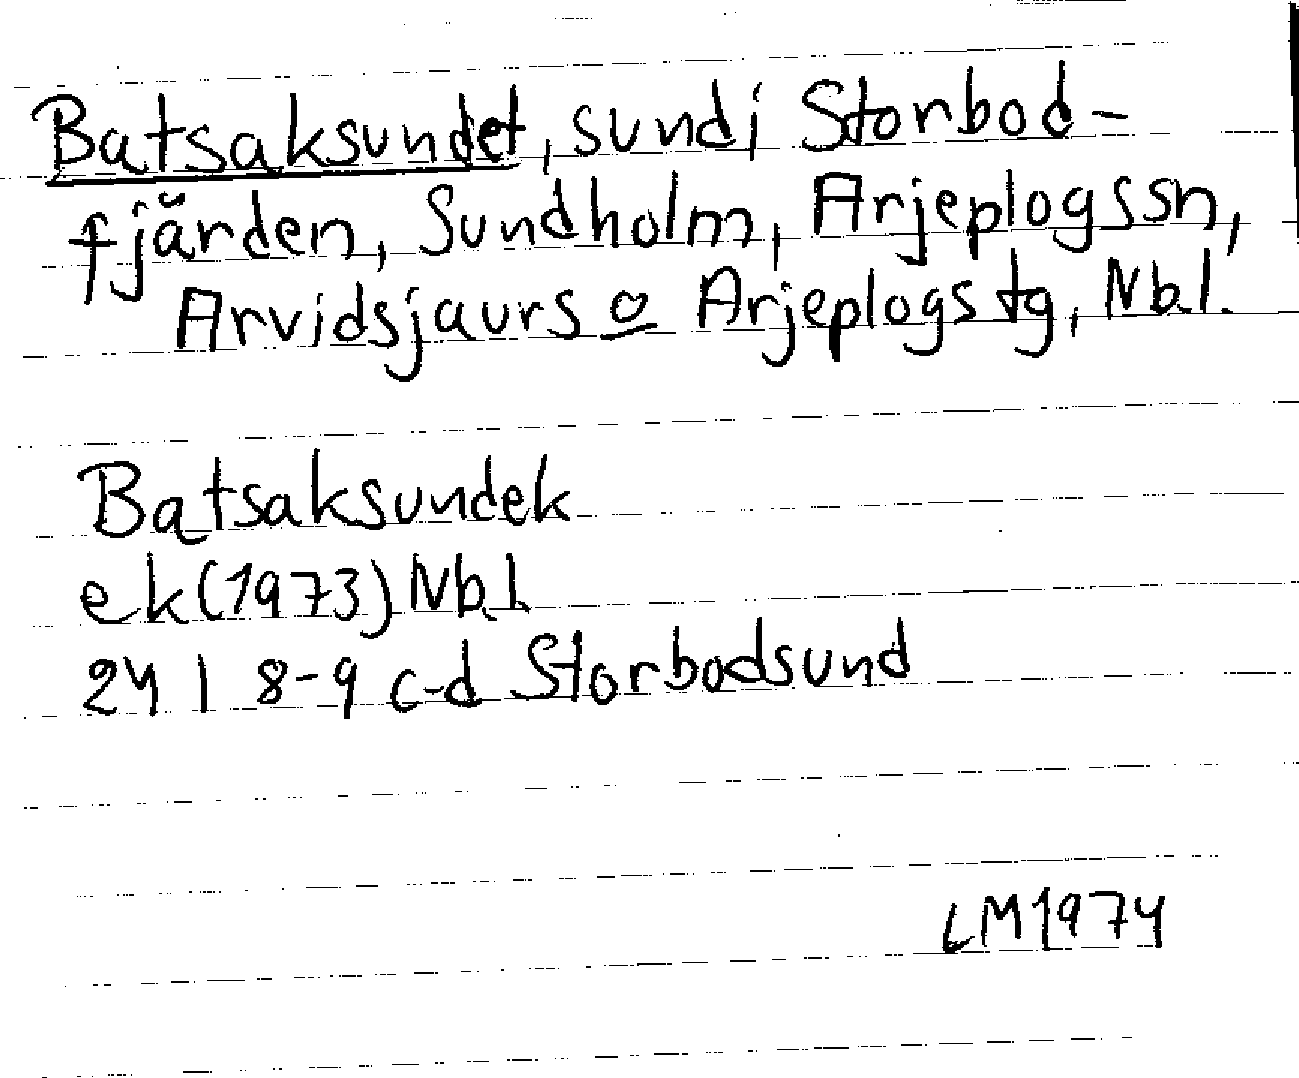 Batsaksundet, sund i Storbod-
fjärden, Sundholm, Arjeplogs sn,
Arvidsjaurs o Arjeplogs tg, Nbl.
Batsaksundek
ek (1973) Nbl
24 I 8-9 c-d Storbodsund
LM 1974